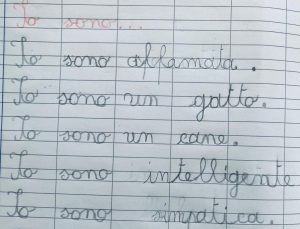 Io sono...
Io sono affamata.
Io sono un gatto.
Io sono un cane.
Io sono intelligente
Io sono simpatica.